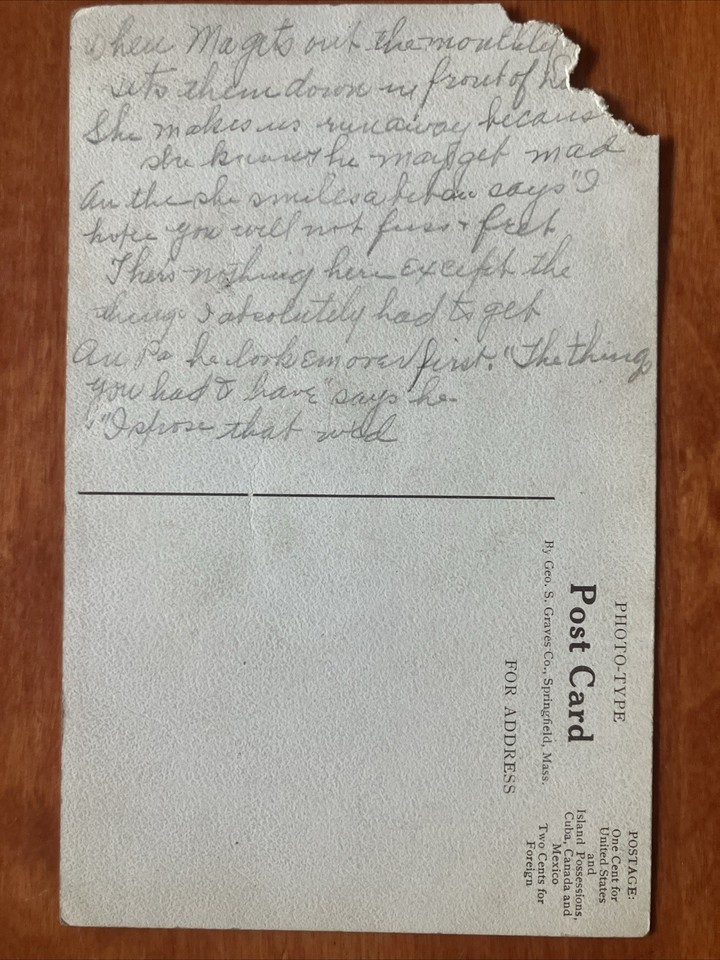 when Ma gets out the monthly
sets them down in front of
She makes us run away becaus
she knows he may get mad
An the she smiles a bit an says "I
hope you will not fuss & fret
Thers nothing here except the
things I absolutely had to get
An Pa he look em over first. "The things
you had to have" says he
"I spose that
PHOTO-TYPE
Post Card
By Geo. S. Graves Co., Springfield, Mass.
FOR ADDRESS
POSTAGE:
One Cent for
United States
and
Island Possessions,
Cuba, Canada and
Mexico
Two Cents for
Foreign